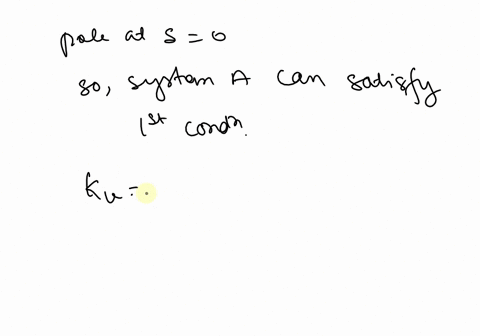 pole at s = 0
so, system A can satisfy
1st condn.
Kv =